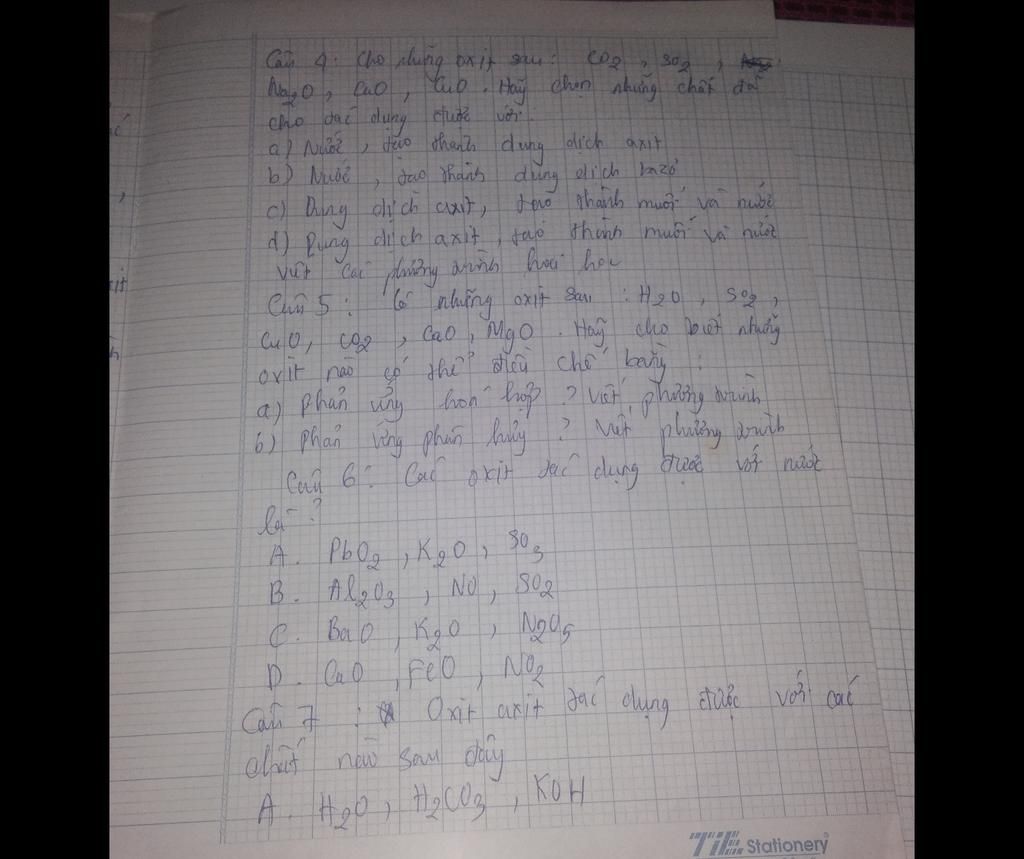 Câu 4: Cho những oxit sau: CO2, SO2,
Na2O, CaO, CuO. Hãy chọn những chất đã
cho tác dụng được với:
a) Nước, tạo thành dung dịch axit
b) Nước, tạo thành dung dịch bazơ
c) Dung dịch axit, tạo thành muối và nước
d) Dung dịch axit, tạo thành muối và nước
viết các phương trình hoá học
Câu 5: Có những oxit sau: H2O, SO2,
CuO, CO2, CaO, MgO. Hãy cho biết những
oxit nào có thể điều chế bằng:
a) phản ứng hoá hợp? Viết phương trình
b) phản ứng phân hủy? Viết phương trình
Câu 6: Các oxit tác dụng được với nước
là?
A. PbO2, K2O, SO3
B. Al2O3, NO, SO2
C. BaO, K2O, N2O5
D. CaO, FeO, NO2
Câu 7: Oxit axit tác dụng được với các
chất nào sau đây
A. H2O, H2CO3, KOH
TiTi Stationery